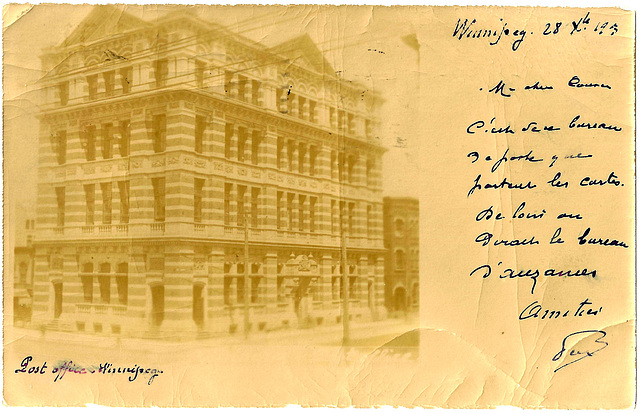 Winnipeg. 28 Xbre 1903
Mon cher Cousin
C'est de ce bureau
De poste que
partent les cartes.
De loin on
Dirait le bureau
D'auzances
Amitiés
Post office Winnipeg.